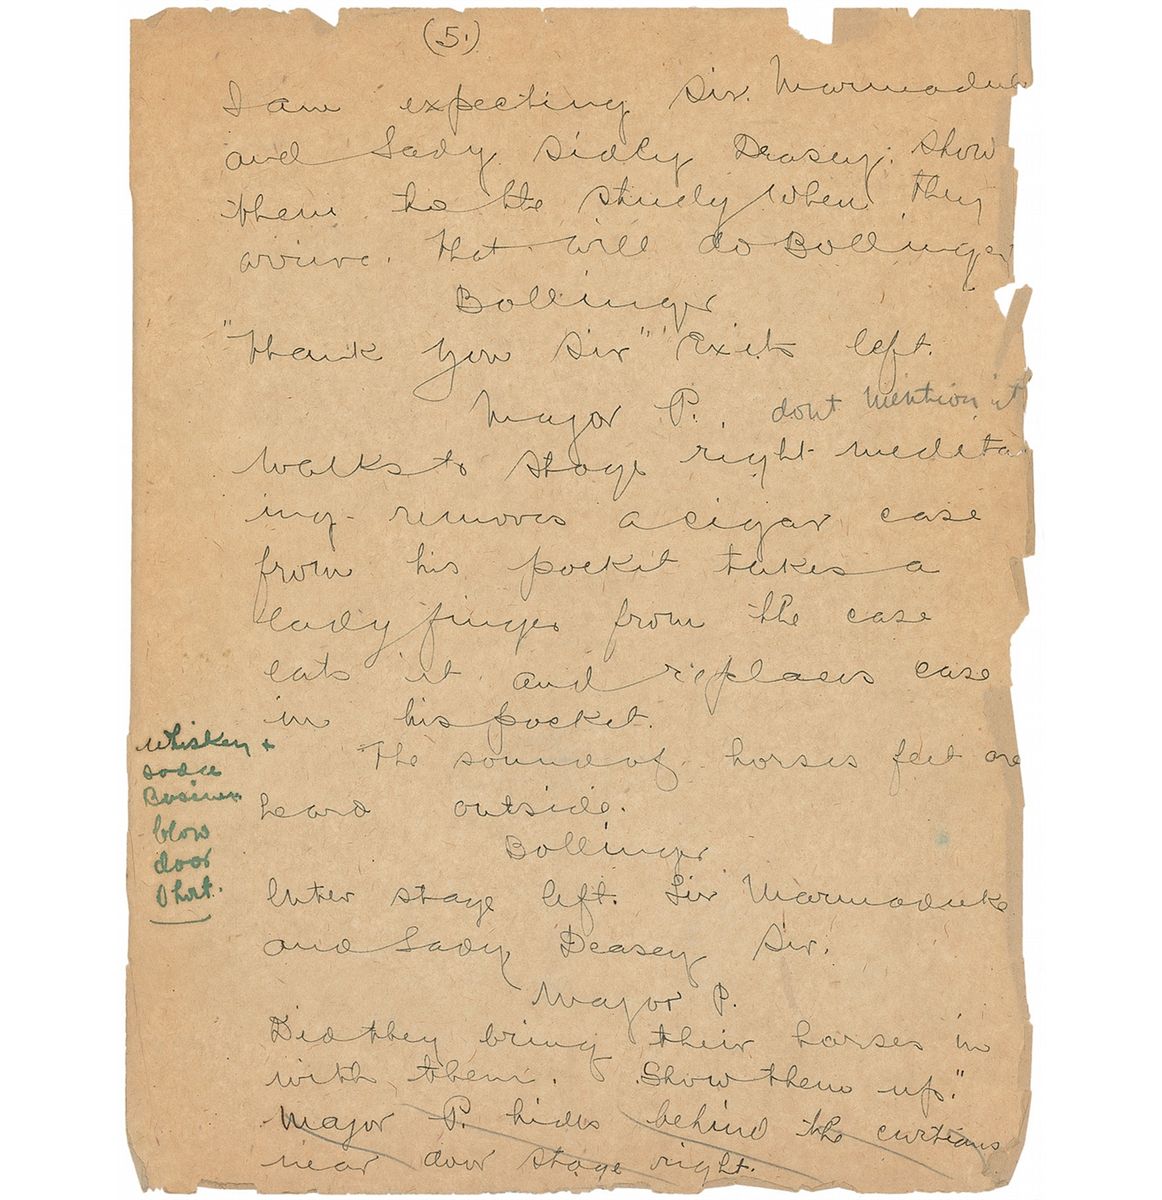 (5.)
I am expecting Sir. Marmaduke
and Lady Sidly Deasey. Show
them to the study when they
arrive. That will do Bollinger
Bollinger
"Thank you Sir" Exits left.
Major P. dont mention it
Walks to stage right medita
ing - removes a cigar case
from his pocket takes a
lady finger from the case
eats it and replaces case
in his pocket.
The sound of horses feet are
heard outside.
whiskey +
soda
Business
blow
door
Bollinger
Enter stage left. Sir Marmaduke
and Lady Deasey Sir.
Major P.
Did they bring their horses in
with them. Show them up."
Major P. hides behind the curtians
near door stage right.